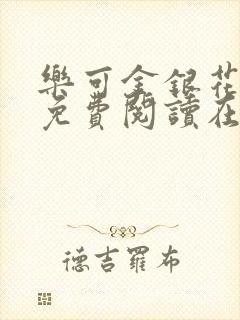 樂可金銀花
免費閱讀在
德吉羅布